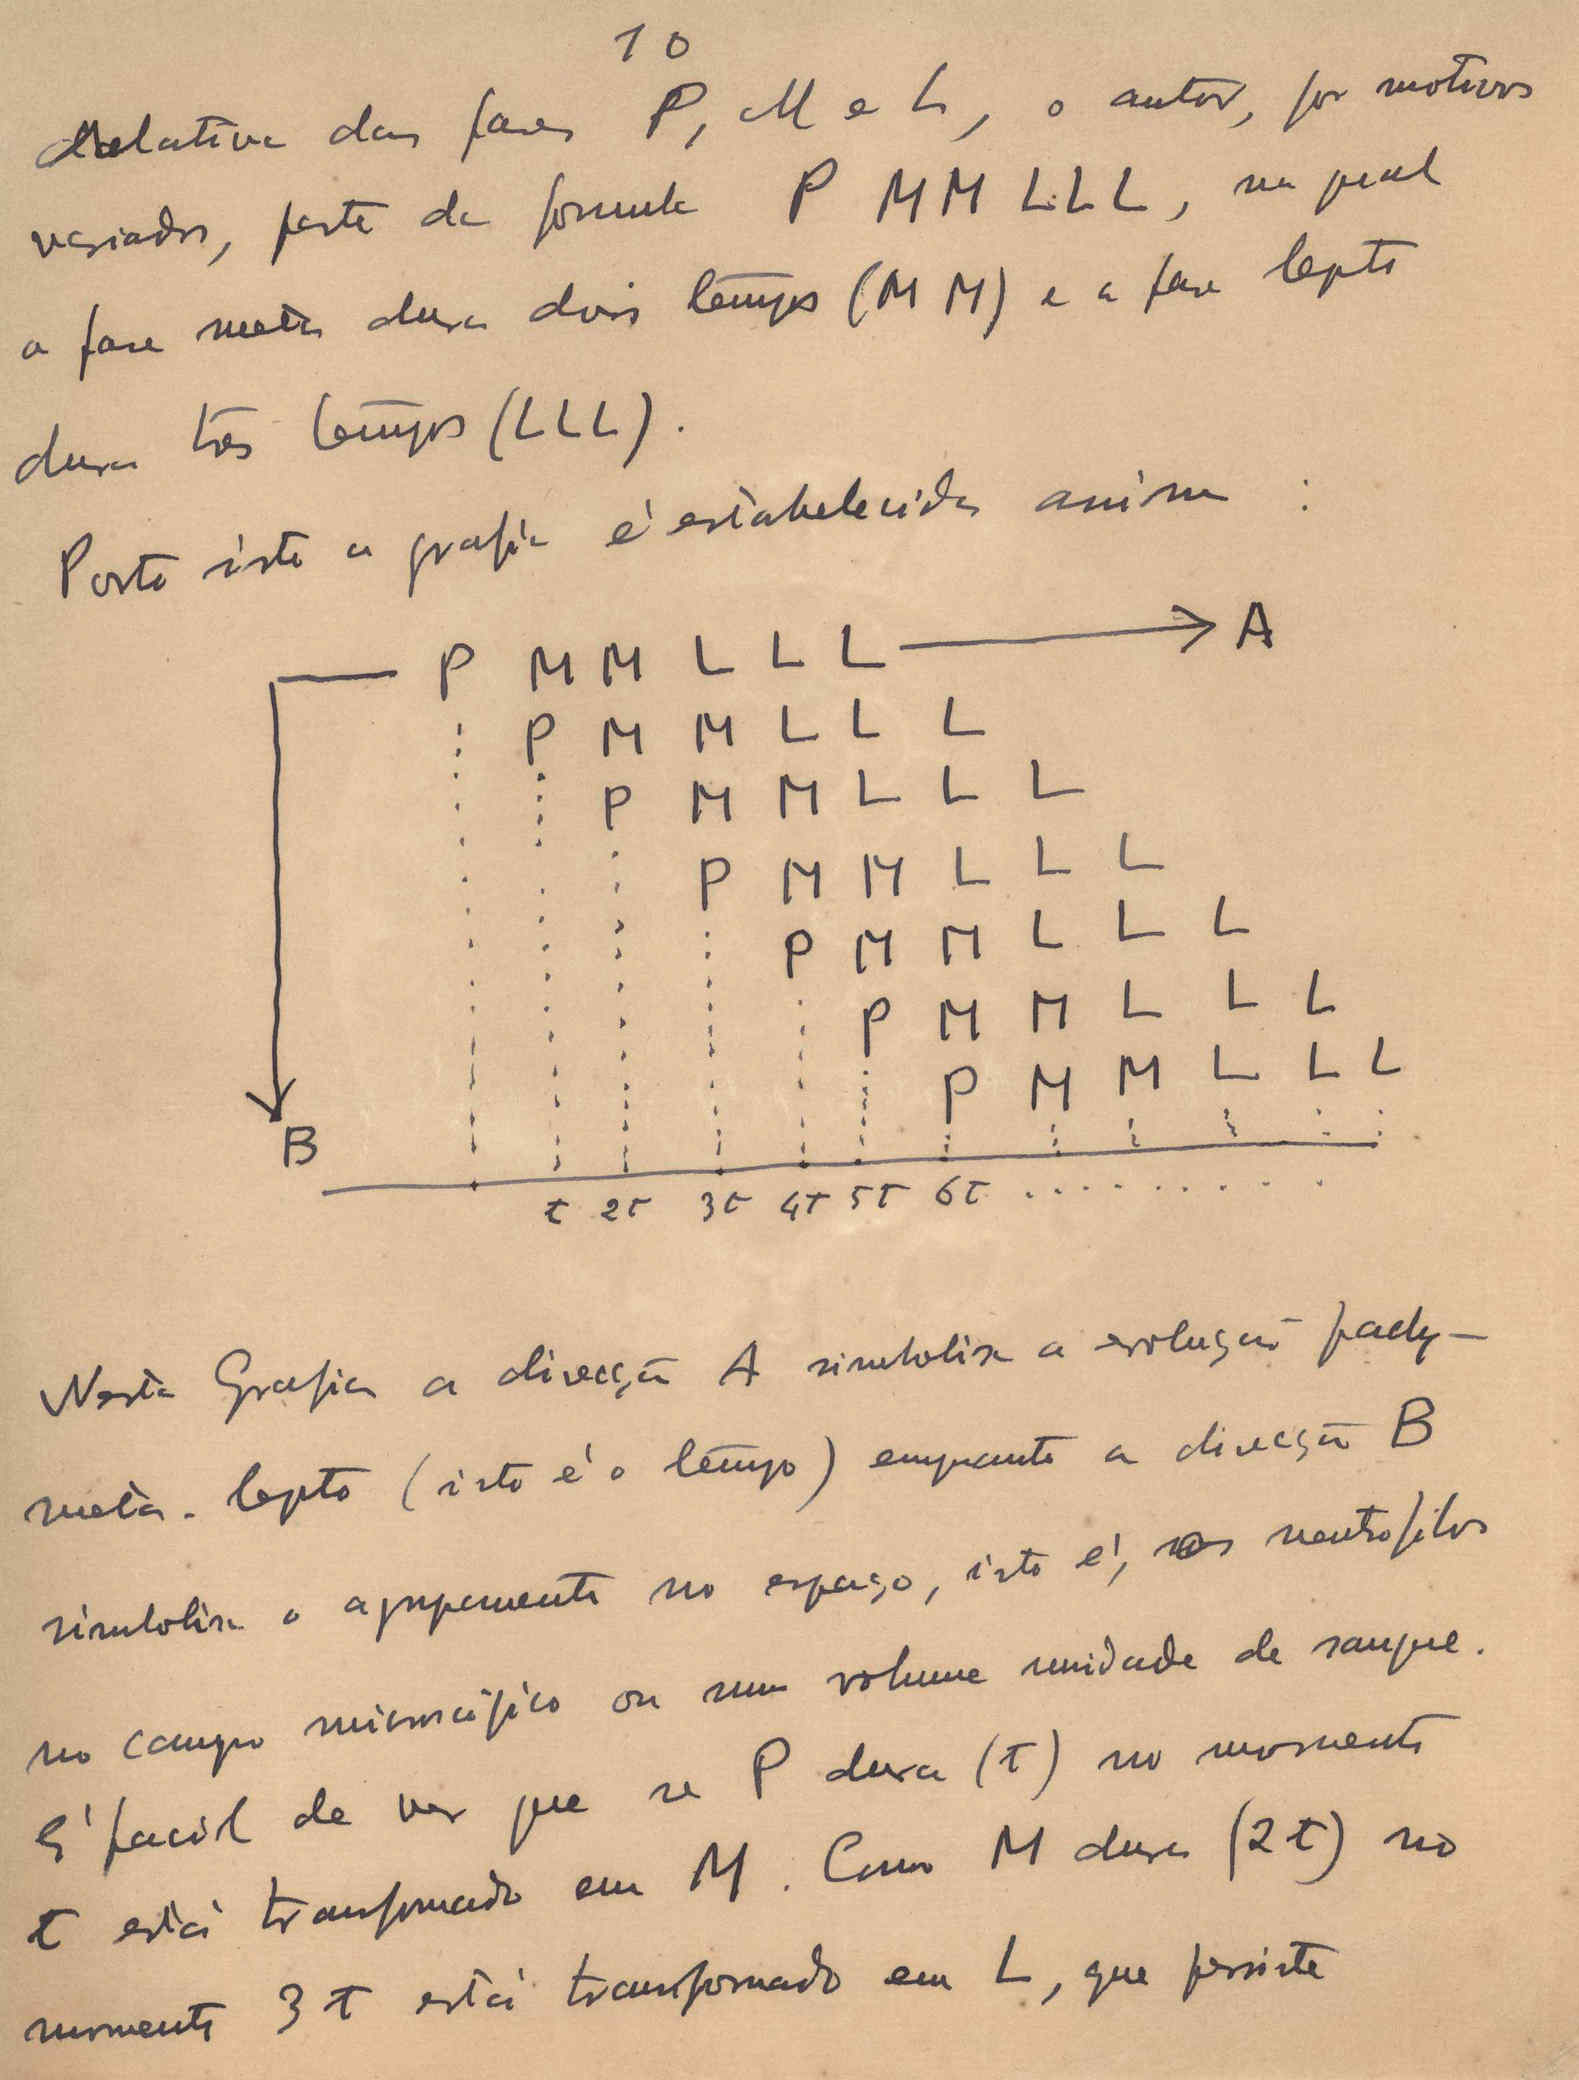 10
relativa das fases P, M e L, o autor, por motivos
variados, parte da formula P MM LLL, na qual
a fase meta dura dois tempos (MM) e a fase lepto
dura três tempos (LLL).
Posto isto a grafia é estabelecida assim :
P M M L L L A
P M M L L L
P M M L L L
P M M L L L
P M M L L L
P M M L L L
P M M L L L
B
t 2t 3t 4t 5t 6t . . . . . . . . .
Nesta Grafia a direcção A simbolisa a evolução pachy-
meta-lepto (isto é o tempo) emquanto a direcção B
simbolisa o agrupamento no espaço, isto é, os neutrofilos
no campo microscópico ou num volume unidade de sangue.
É facil de ver que se P dura (t) no momento
t está transformado em M. Como M dura (2t) no
momento 3t está transformado em L, que persiste